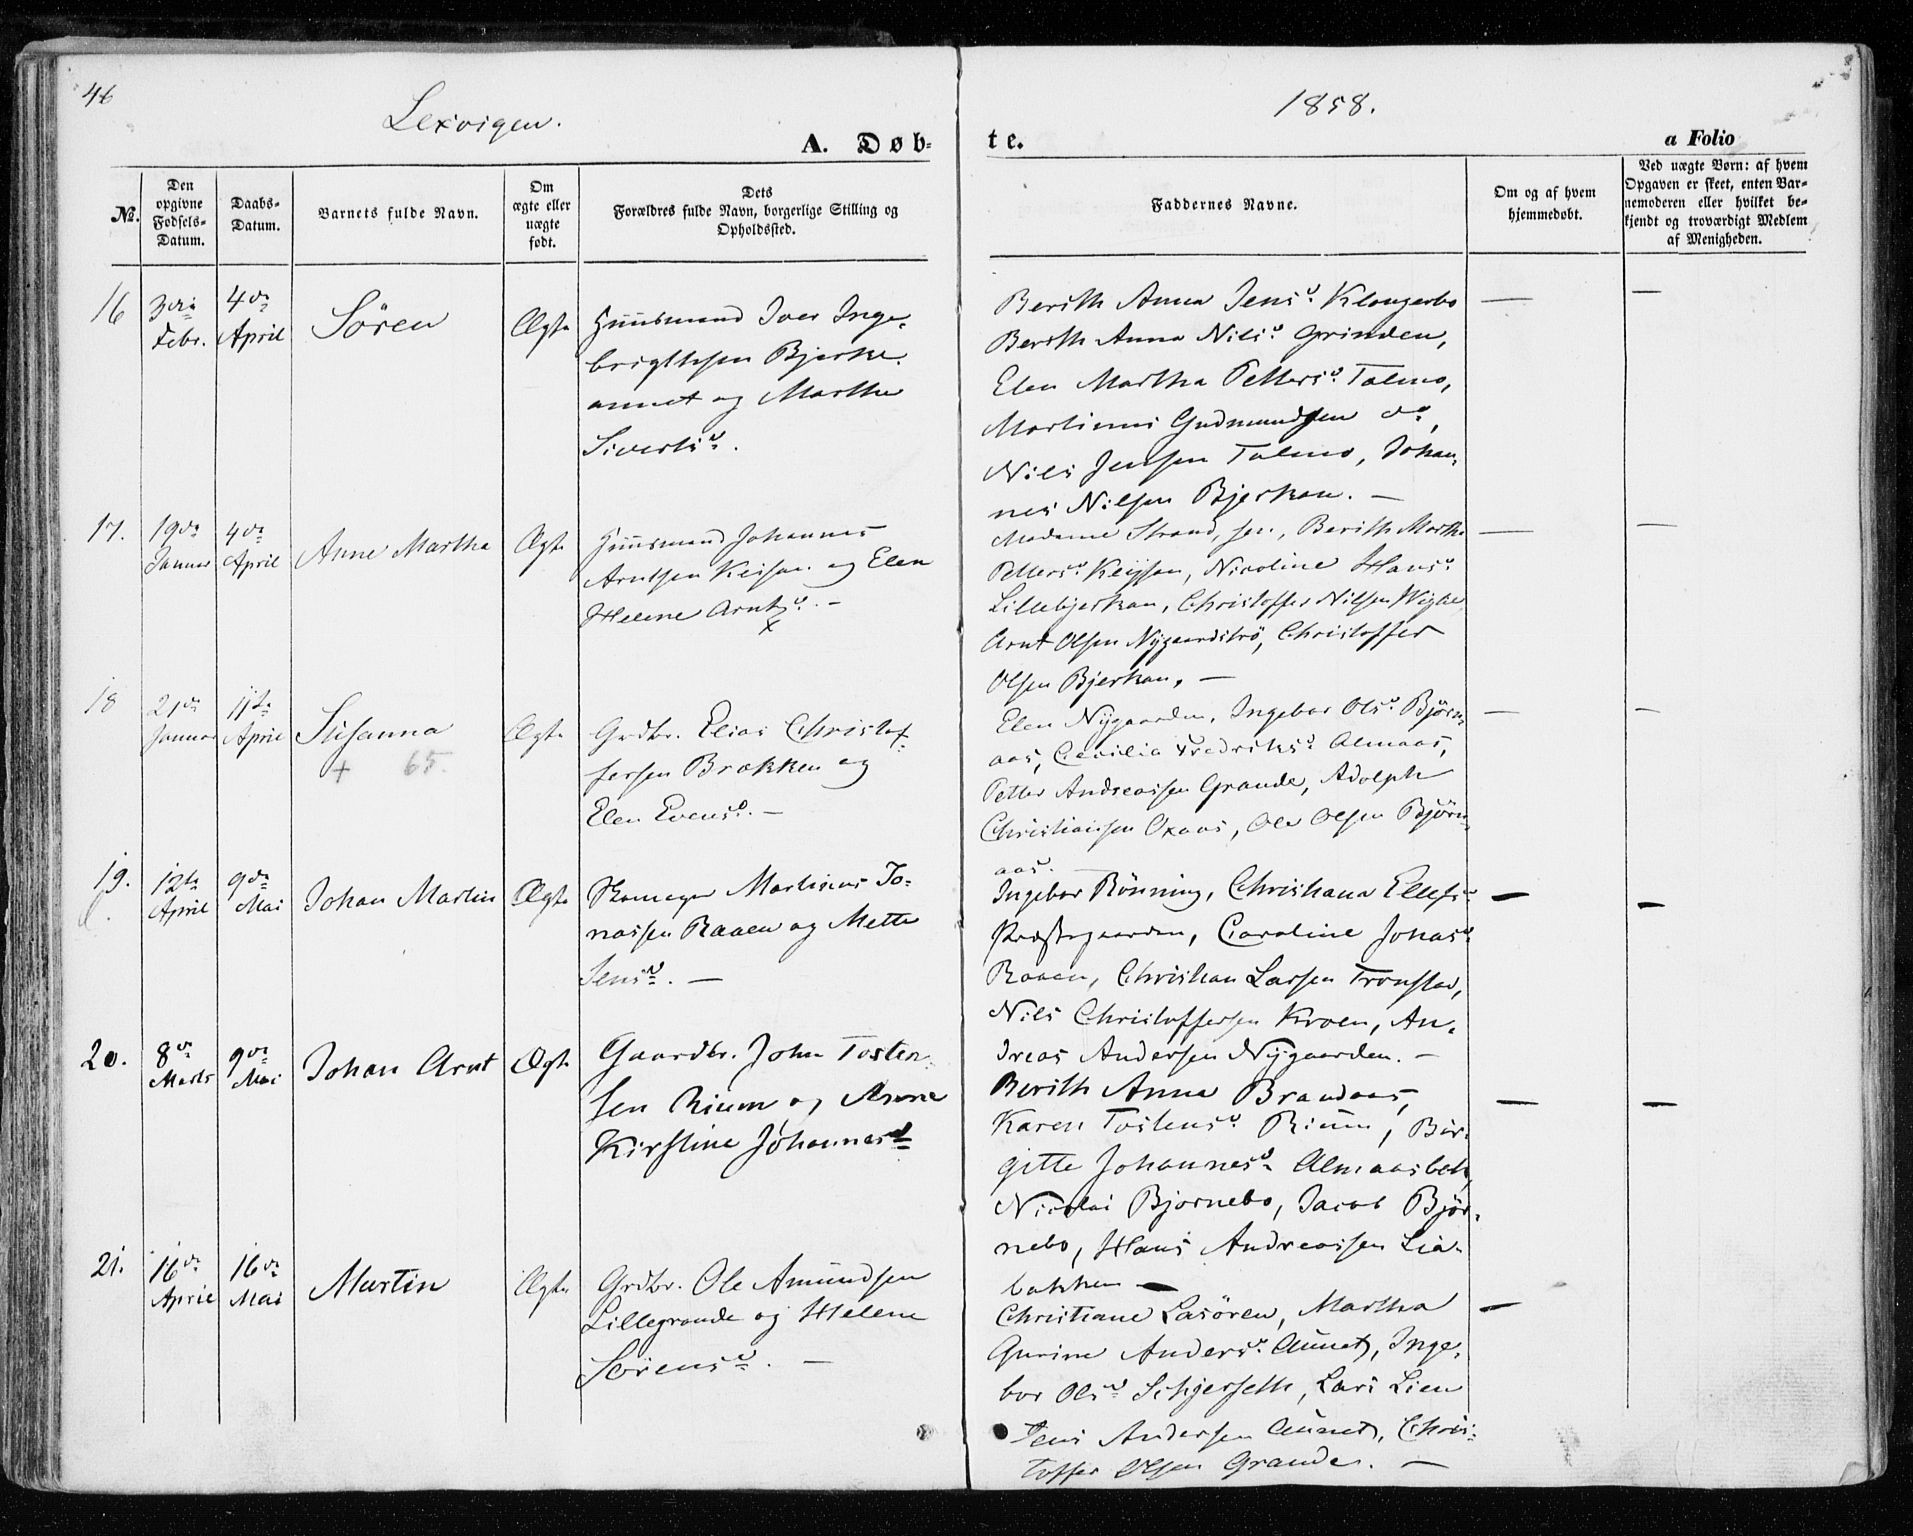 46
Lexvigen.
1858.
A. Døb-
te.
a Folio
No.
Den opgivne Fødsels-Datum.
Daabs-Datum.
Barnets fulde Navn.
Om ægte eller uægte født.
Dets
Forældres fulde Navn, borgerlige Stilling og
Opholdssted.
Faddernes Navne.
Om og af hvem
hjemmedøbt.
Ved uægte Børn: af hvem
Opgaven er skeet, enten Bar-
nemoderen eller hvilket be-
kjendt og troværdigt Medlem
af Menigheden.
16
3die Febr.
4de April
Sören
Ægte
Huusmand Iver Inge-
brigtsen Bjerke-
aunet og Martha
Sivertsd.
Berith Anna Jensd. Klongerbo
Berith Anna Nilsd. Grinden,
Elen Martha Pettersd. Talmo,
Martinus Gudmundsen do,
Nils Jensen Talmo, Johan-
nes Nilsen Bjerkan. —
17.
19de Januar
4de April
Anne Martha
Ægte
Huusmand Johannes
Arntsen Keisan og Elen
Helene Arntsd. —
x
Madame Strand, sen., Berith Martha
Pettersd. Keysan, Nicoline Hansd.
Lillebjerkan, Christoffer Nilsen
Arnt Olsen Nygaardströ, Christoffer
Olsen Bjerkan. —
18
21de Januar
11te April
Susanna
+ 65.
Ægte
Grdbr. Elias Christof-
fersen Brækken og
Elen Evensd. —
Elen Nygaarden, Ingebor Olsd. Björn-
aas, Cecilia Fredriksd. Almaas,
Petter Andreassen Grande, Adolph
Christiansen Oxaas, Ole Olsen Björn-
aas. —
19.
12te April
9de Mai
Johan Martin
Ægte
Skomager Martinus Jo-
nassen Raaen og Mette
Jensd. —
Ingebor Rönning, Christiana Ellefsd.
Præstegaarden, Caroline Jonasd.
Raaen, Christian Larsen Tronstad,
Nils Christoffersen Kroen, An-
dreas Andersen Nygaarden. —
20.
8de Marts
9de Mai
Johan Arnt
Ægte
Gaardbr. John Tosten-
sen Rium og Anne
Kirstine Johannesd.
Berith Anna Brandaas,
Karen Tostensd. Rium, Bir-
gitte Johannesd. Almaasbak,
Nicolai Bjørnebo, Jacob Bjør-
nebo, Hans Andreassen Lia-
bakken —
21.
16de April
16de Mai
Martin
Ægte
Grdbr. Ole Amundsen
Lillegrande og Helene
Sørensd. —
Christiane Lasören, Martha
Gurine Andersd. Aunet, Inge-
bor Olsd. Schjerseth, Lars Lien
Jens Andersen Aunet, Chris-
toffer Olsen Grande. —